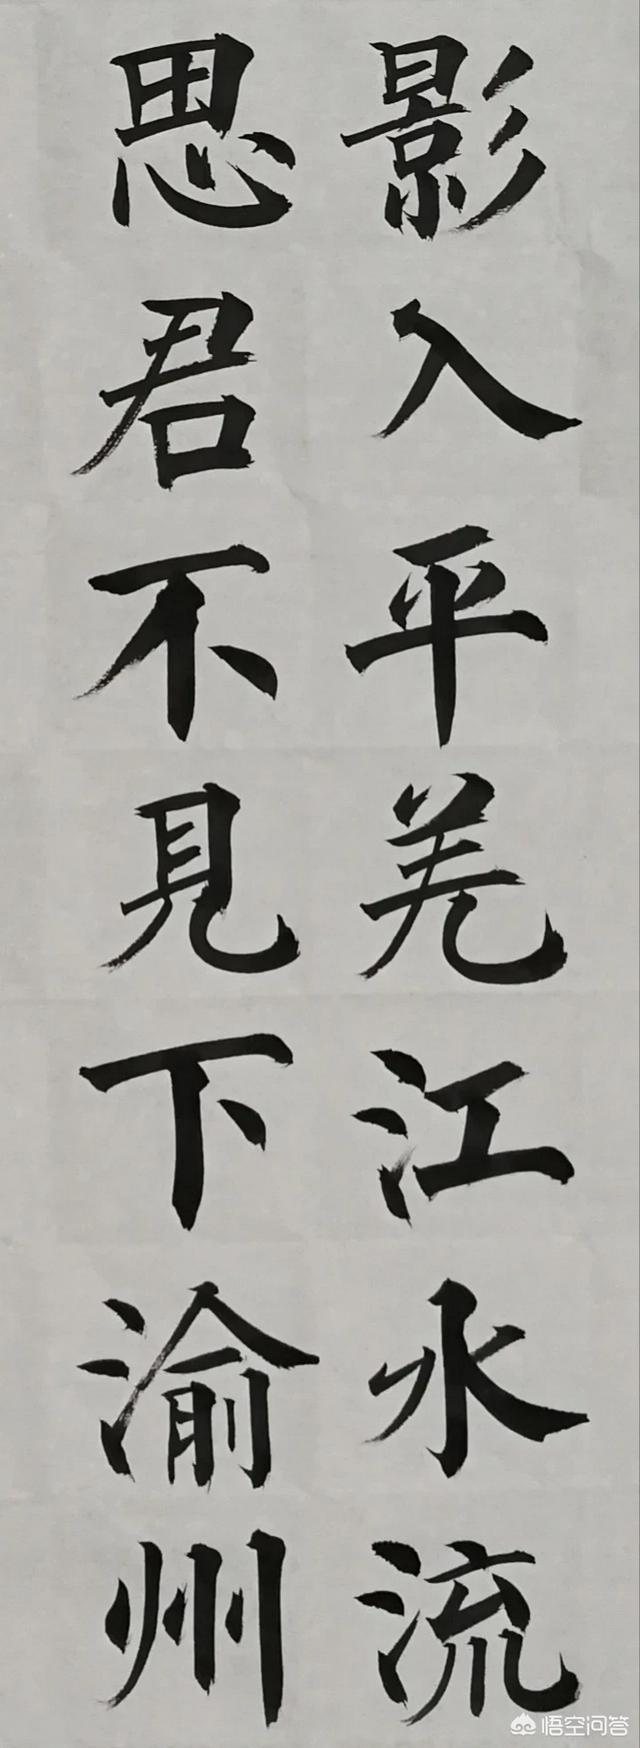 影入平羌江水流
思君不見下渝州
悟空问答